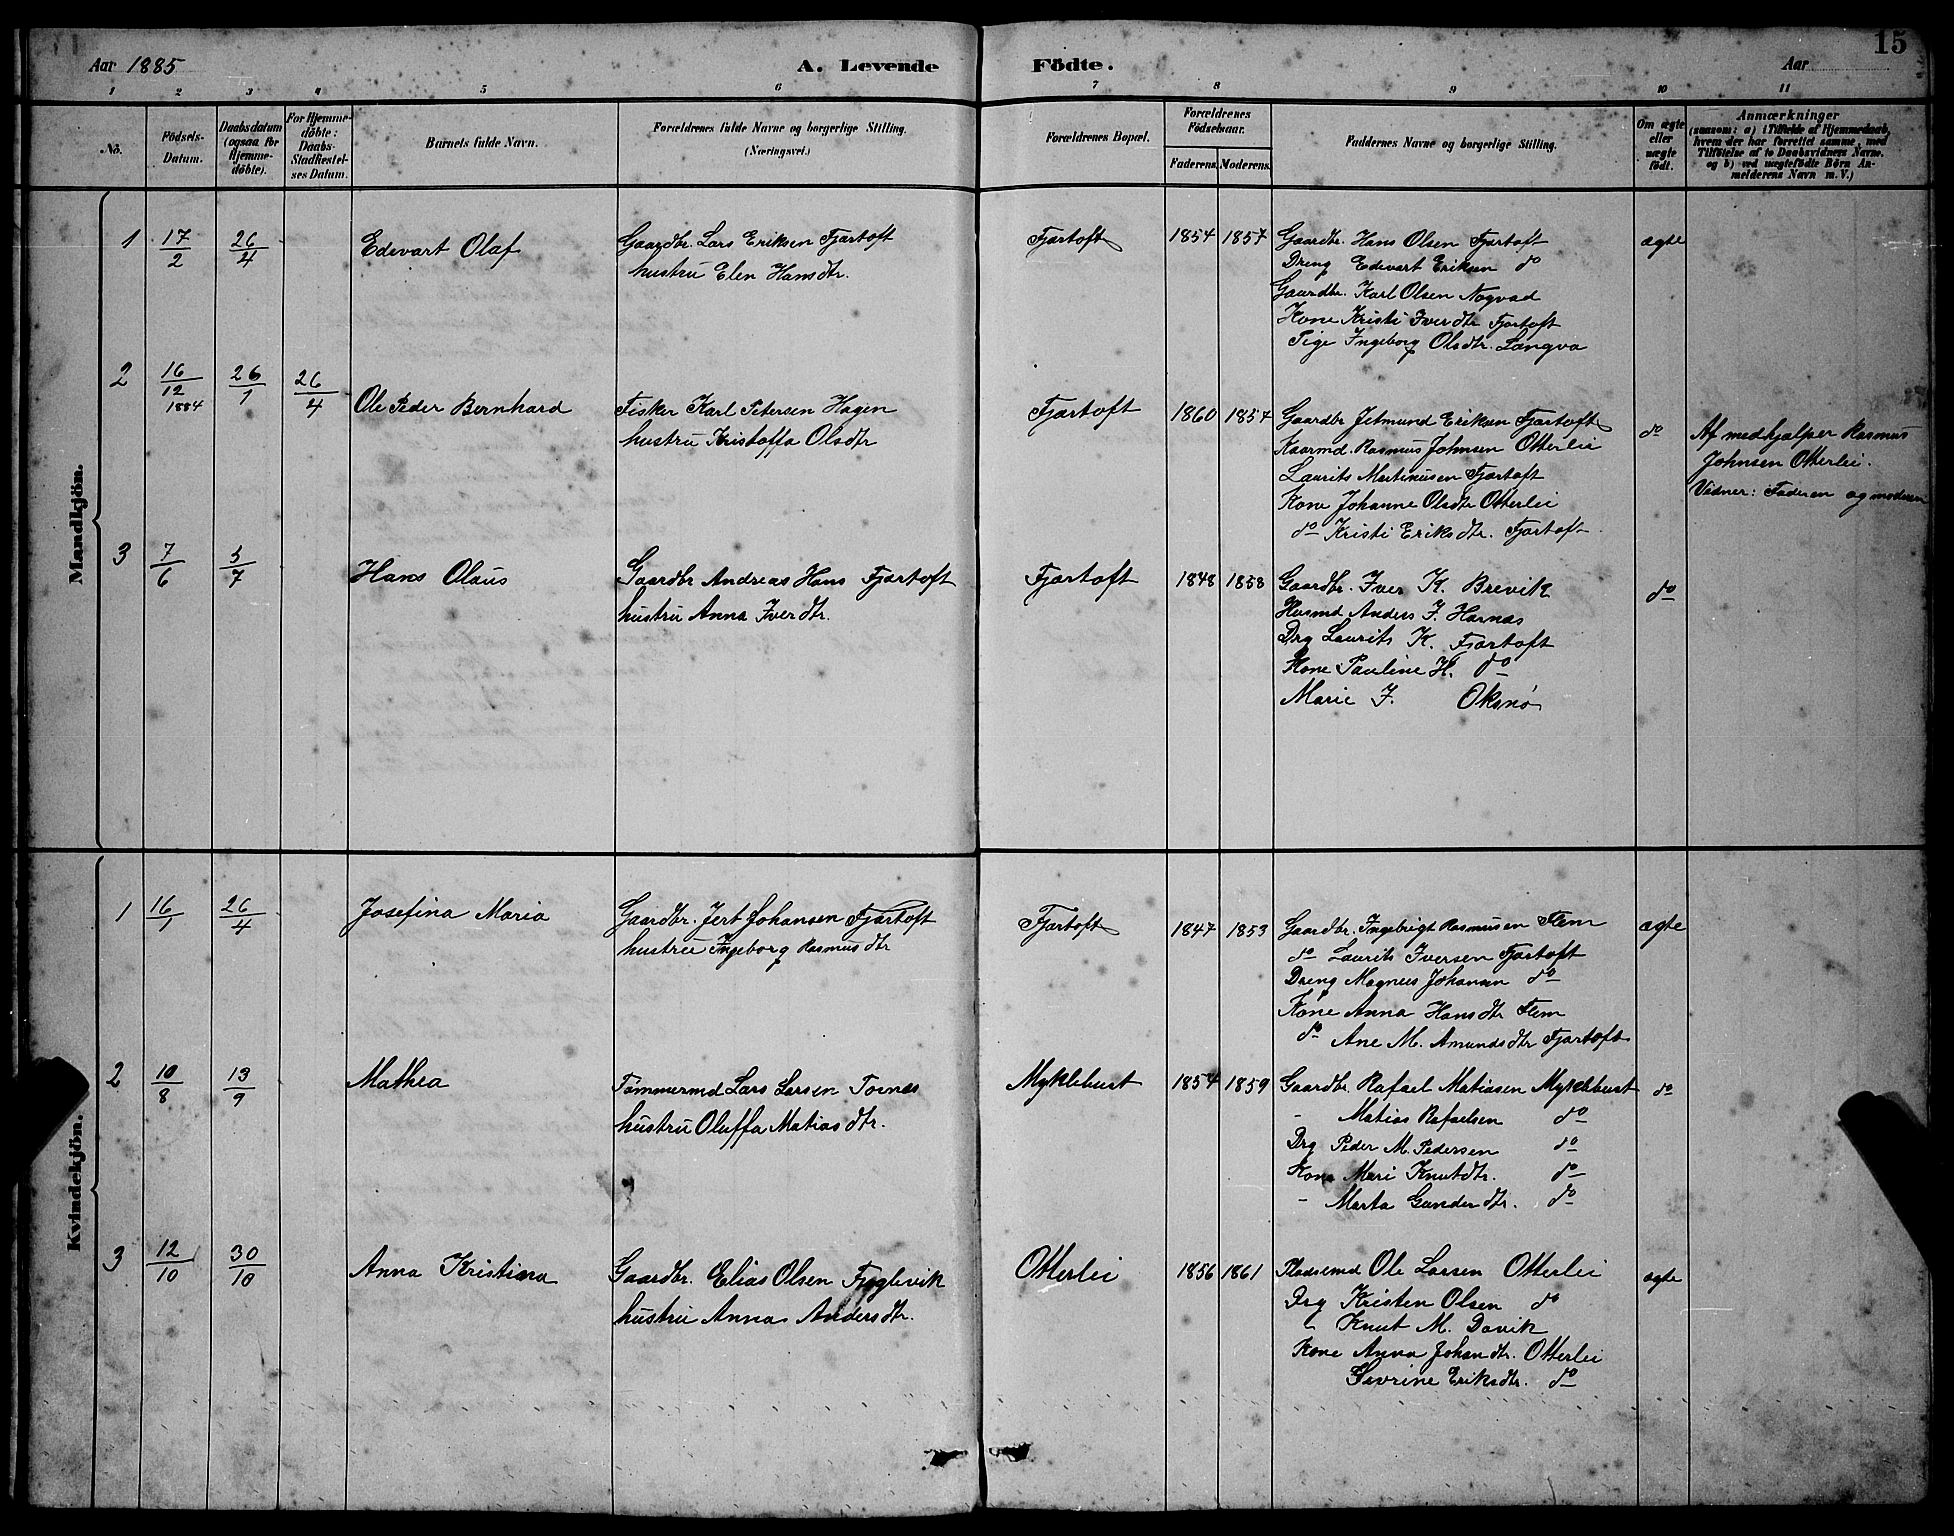 15
Aar 1885 A. Levende Födte. Aar
1 2 3 4 5 6 7 8 9 10 11
No.
Födsels-Datum.
Daabsdatum (ogsaa for Hjemme-döbte).
For Hjemme-döbte: Daabs-Stadfestel-ses Datum.
Barnets fulde Navn.
Forældrenes fulde Navne og borgerlige Stilling. (Næringsvei.)
Forældrenes Bopæl.
Forældrenes Födselsaar.
Faderens. Moderens.
Faddernes Navne og borgerlige Stilling.
Om ægte eller uægte födt.
Anmærkninger
(saasom: a) i Tilfælde af Hjemmedaab, hvem der har forrettet samme, med Tilföielse af to Daabsvidners Navne, og b) ved uægtefödte Börn An-melderens Navn m. V.)
Mandkjön.
1 17/2 26/4 Edevart Olaf
Gaardbr. Lars Eriksen Fjørtoft
hustru Elen Hansdtr.
Fjørtoft 1854 1857
Gaardbr. Hans Olsen Fjørtoft
Dreng Edevart Eriksen do
Gaardbr. Karl Olsen Nogvad
Kone Kristi Iverdtr Fjørtoft
Pige Ingeborg Olsdtr. Longva
ægte
2 16/12 1884 26/1 26/4 Ole Peder Bernhard
Fisker Karl Petersen Hagen
hustru Kristoffa Olsdtr
Fjørtoft 1860 1854
Gaardbr Jetmund Eriksen Fjørtoft
Kaarmd. Rasmus Johnsen Otterlei
Laurits Martinusen Fjørtoft
Kone Johanne Olsdtr Otterlei
do Kristi Eriksdtr. Fjørtoft
do
Af medhjælper Rasmus
Johnsen Otterlei.
Vidner: Faderen og moderen
3 7/6 5/7 Hans Olaus
Gaardbr Andreas Hans Fjørtoft
hustru Anna Iverdtr.
Fjørtoft 1848 1858
Gaardbr. Iver K. Brevik
Husmd Anders J. Harnæs
Drg Laurits K. Fjørtoft
Kone Pauline H. do
Marie J. Oksnø
do
Kvindekjön.
1 16/1 26/4 Josefina Maria
Gaardbr. Jert Johansen Fjørtoft
hustru Ingeborg Rasmusdtr
Fjørtoft 1847 1853
Gaardbr. Ingebrigt Rasmusen Flem
do Laurits Iversen Fjørtoft
Dreng Magnus Johansen do
Kone Anna Hansdtr Flem
do Ane M. Amundsdtr Fjørtoft
ægte
2 10/8 13/9 Mathea
Tømmermd Lars Larsen Tornes
hustru Oluffa Matiasdtr.
Myklebust 1854 1859
Gaardbr. Rafael Matiasen Myklebust
- Matias Rafaelsen do
Drg Peder M. Pedersen do
Kone Mari Knutdtr. do
- Marta Gunderdtr. do
do
3 12/10 30/10 Anna Kristiana
Gaardbr. Elias Olsen Fuglevik
hustru Anna Andersdtr.
Otterlei 1856 1861
Pladsemd Ole Larsen Otterlei
Drg Kristen Olsen do
- Knut M. Davik
Kone Anna Johandtr. Otterlei
Sivrine Eriksdtr. do
ægte